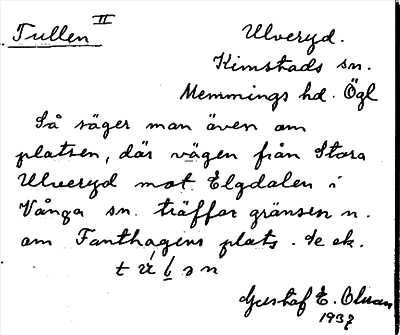 Tullen II
Ulveryd.
Kimstads sn.
Memmings hd. Ögl
Så säger man även om
platsen, där vägen från Stora
Ulveryd mot Elgdalen i
Vånga sn. träffar gränsen n.
om Fanthagens plats. Se ek.
Gustaf E. Olsson
1937